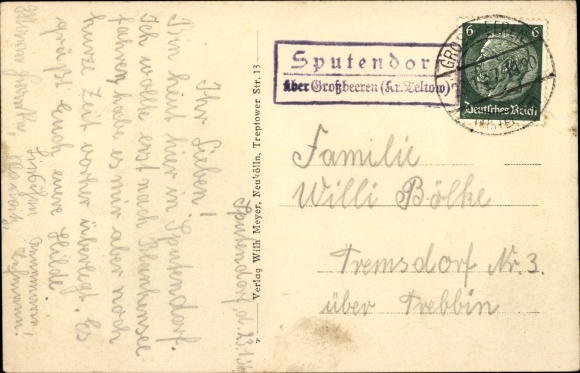 Sputendorf, d. 23.1.36
Ihr Lieben!
Bin heut hier in Sputendorf.
Ich wollte erst nach Blankensee
fahren habe es mir aber noch
kurze Zeit vorher überlegt. Es
grüßt Euch eure Hilde
Lehmann.
Verlag Wilh Meyer, Neukölln, Treptower Str. 13
Sputendorf
über Großbeeren (Kr. Teltow)
6 6
Deutsches Reich
Familie
Willi Bölke
Tremsdorf Nr. 3.
über Trebbin